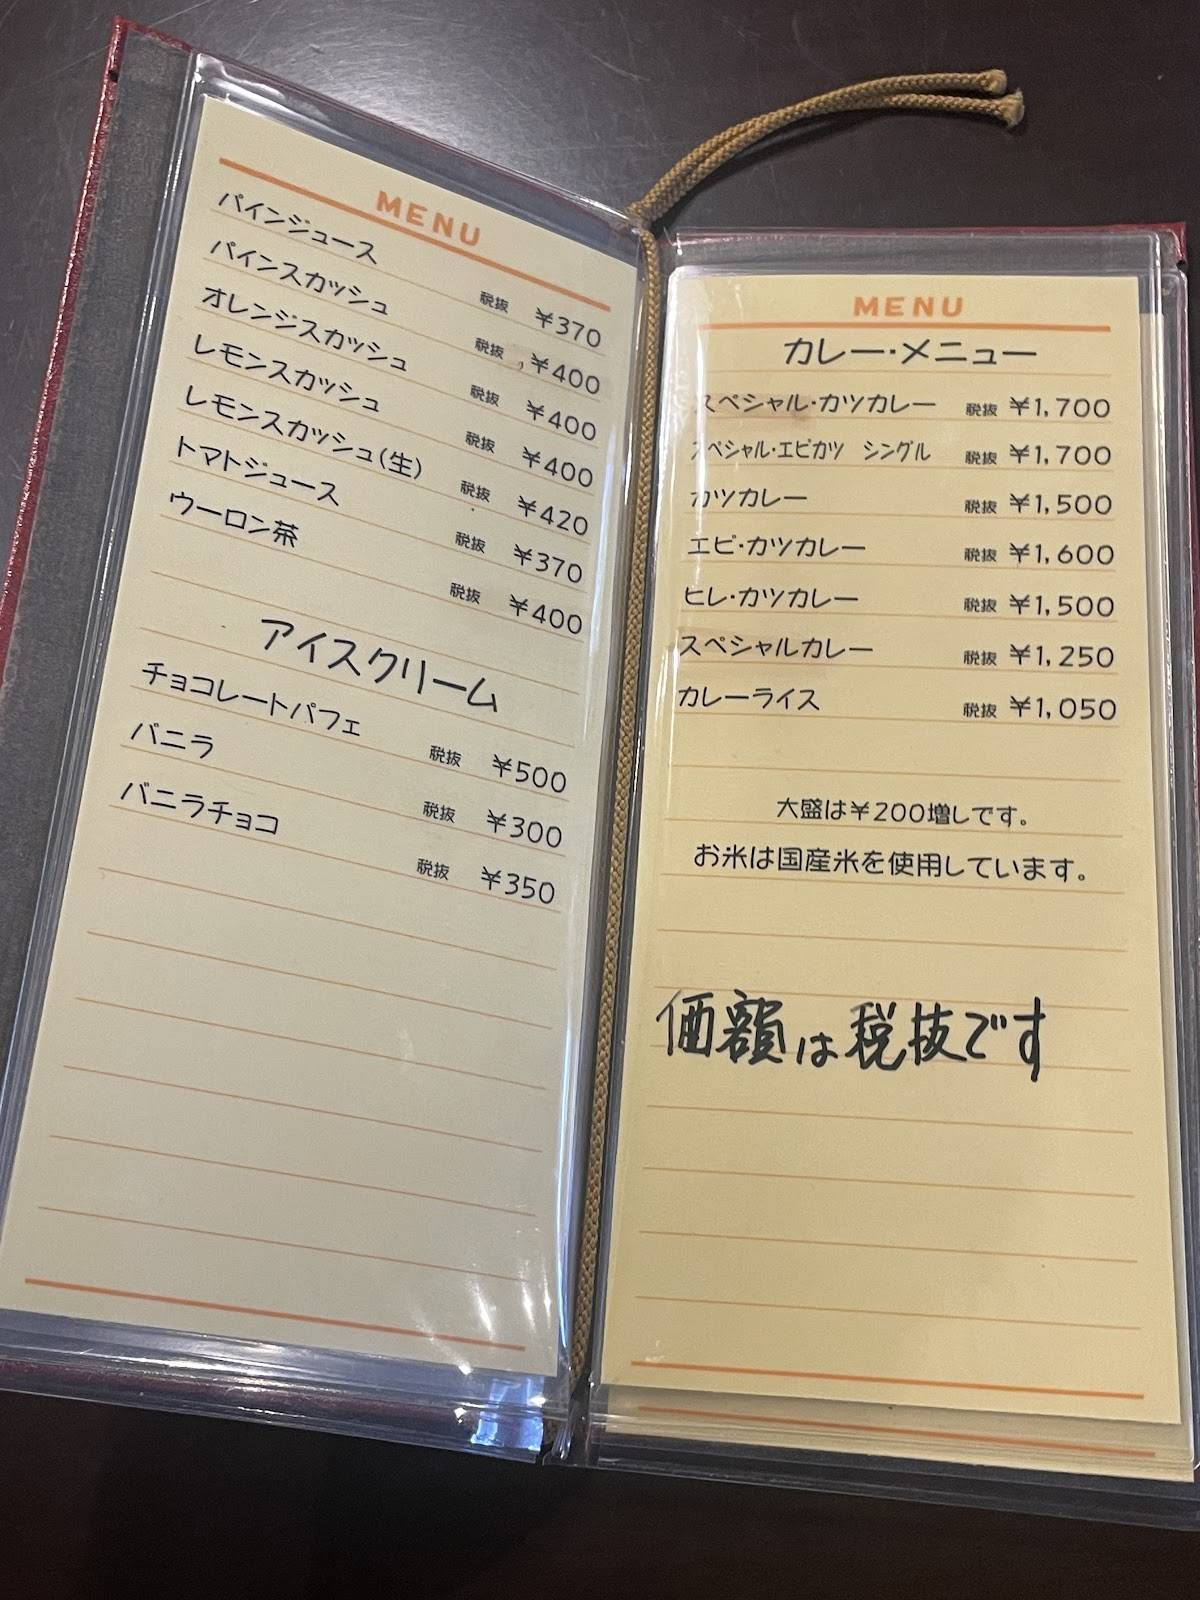 MENU
パインジュース 税抜 ¥370
パインスカッシュ 税抜 ¥400
オレンジスカッシュ 税抜 ¥400
レモンスカッシュ 税抜 ¥400
レモンスカッシュ(生) 税抜 ¥420
トマトジュース 税抜 ¥370
ウーロン茶 税抜 ¥400
アイスクリーム
チョコレートパフェ 税抜 ¥500
バニラ 税抜 ¥300
バニラチョコ 税抜 ¥350
MENU
カレー・メニュー
スペシャル・カツカレー 税抜 ¥1,700
スペシャル・エビカツ シングル 税抜 ¥1,700
カツカレー 税抜 ¥1,500
エビ・カツカレー 税抜 ¥1,600
ヒレ・カツカレー 税抜 ¥1,500
スペシャルカレー 税抜 ¥1,250
カレーライス 税抜 ¥1,050
大盛は¥200増しです。
お米は国産米を使用しています。
価額は税抜です